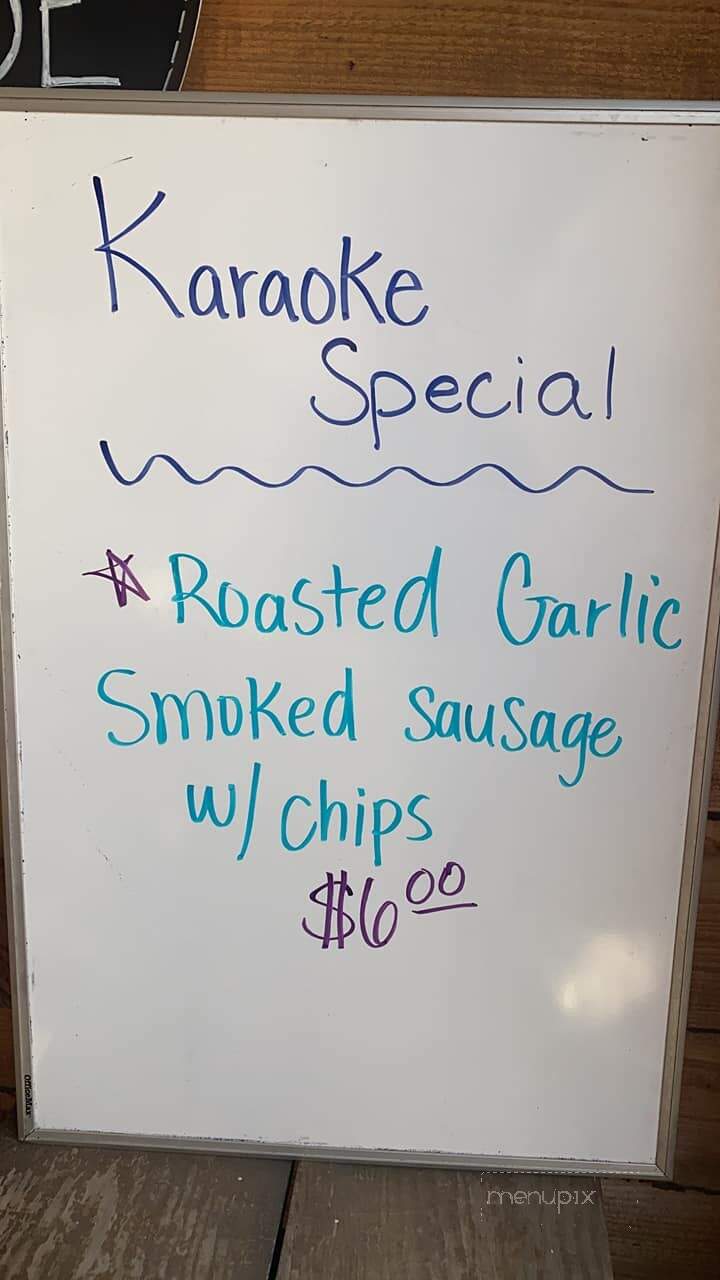 DE
Karaoke
Special
☆ Roasted Garlic
Smoked sausage
w/ chips
$6.00
OfficeMax
menupix